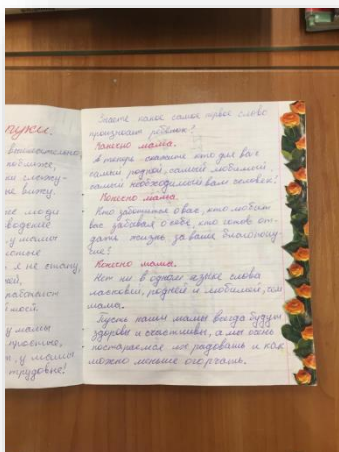 пужи.
внимательно,
поближе,
не вижу.
ые люди
у мамы
я не стану,
работает
у мамы
простые,
, у мамы
трудовые!
Знаете какое самое первое слово
произносит ребёнок!
Конесно мама.
А теперь скажите кто для вас
самый родной, самый любимый,
самый необходимый вам человек!
Конесно мама.
Кто заботится о вас, кто любит
вас забывая о себе, кто готов от-
дать жизнь за ваше благополу-
чие!
Конесно мама.
Нет ни в одном языке слова
ласковей, родней и любимей, чем
мама.
Пусть наши мамы всегда будут
здоровы и счастливы, а мы осень
постараемся их радовать и как
можно меньше огорчать.